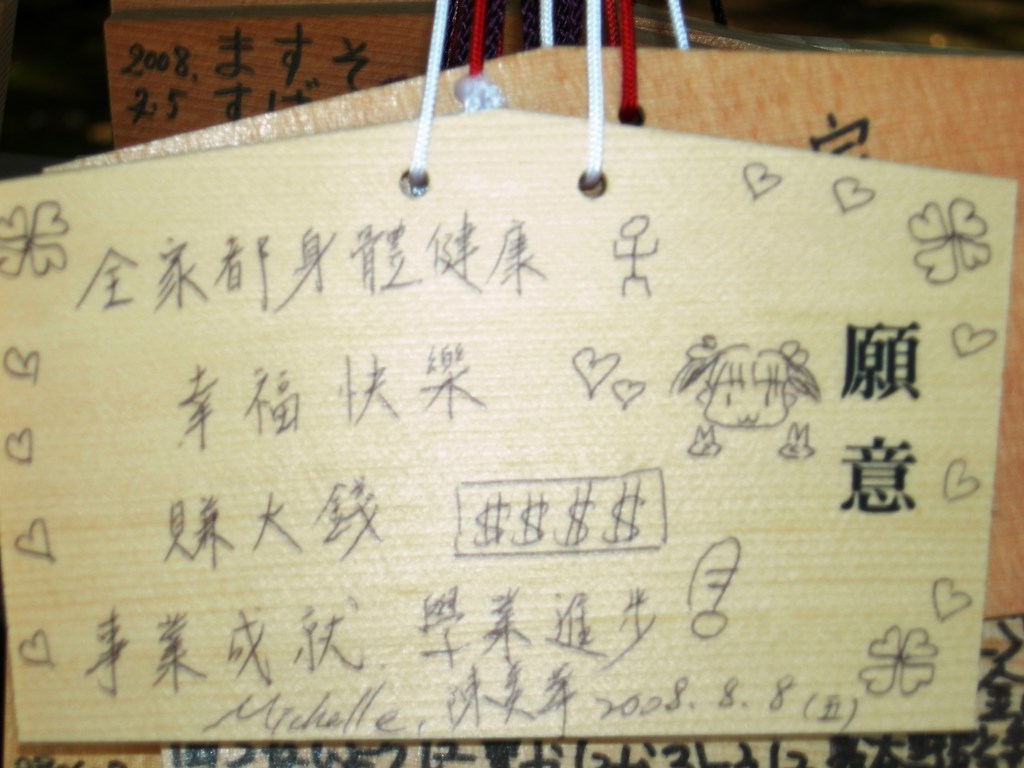 2008. ますそ
2.5 すば
願意
全家都身體健康
幸福快樂
賺大錢 $$$$
事業成就. 學業進步!
Michelle, 陳美 2008.8.8 (五)